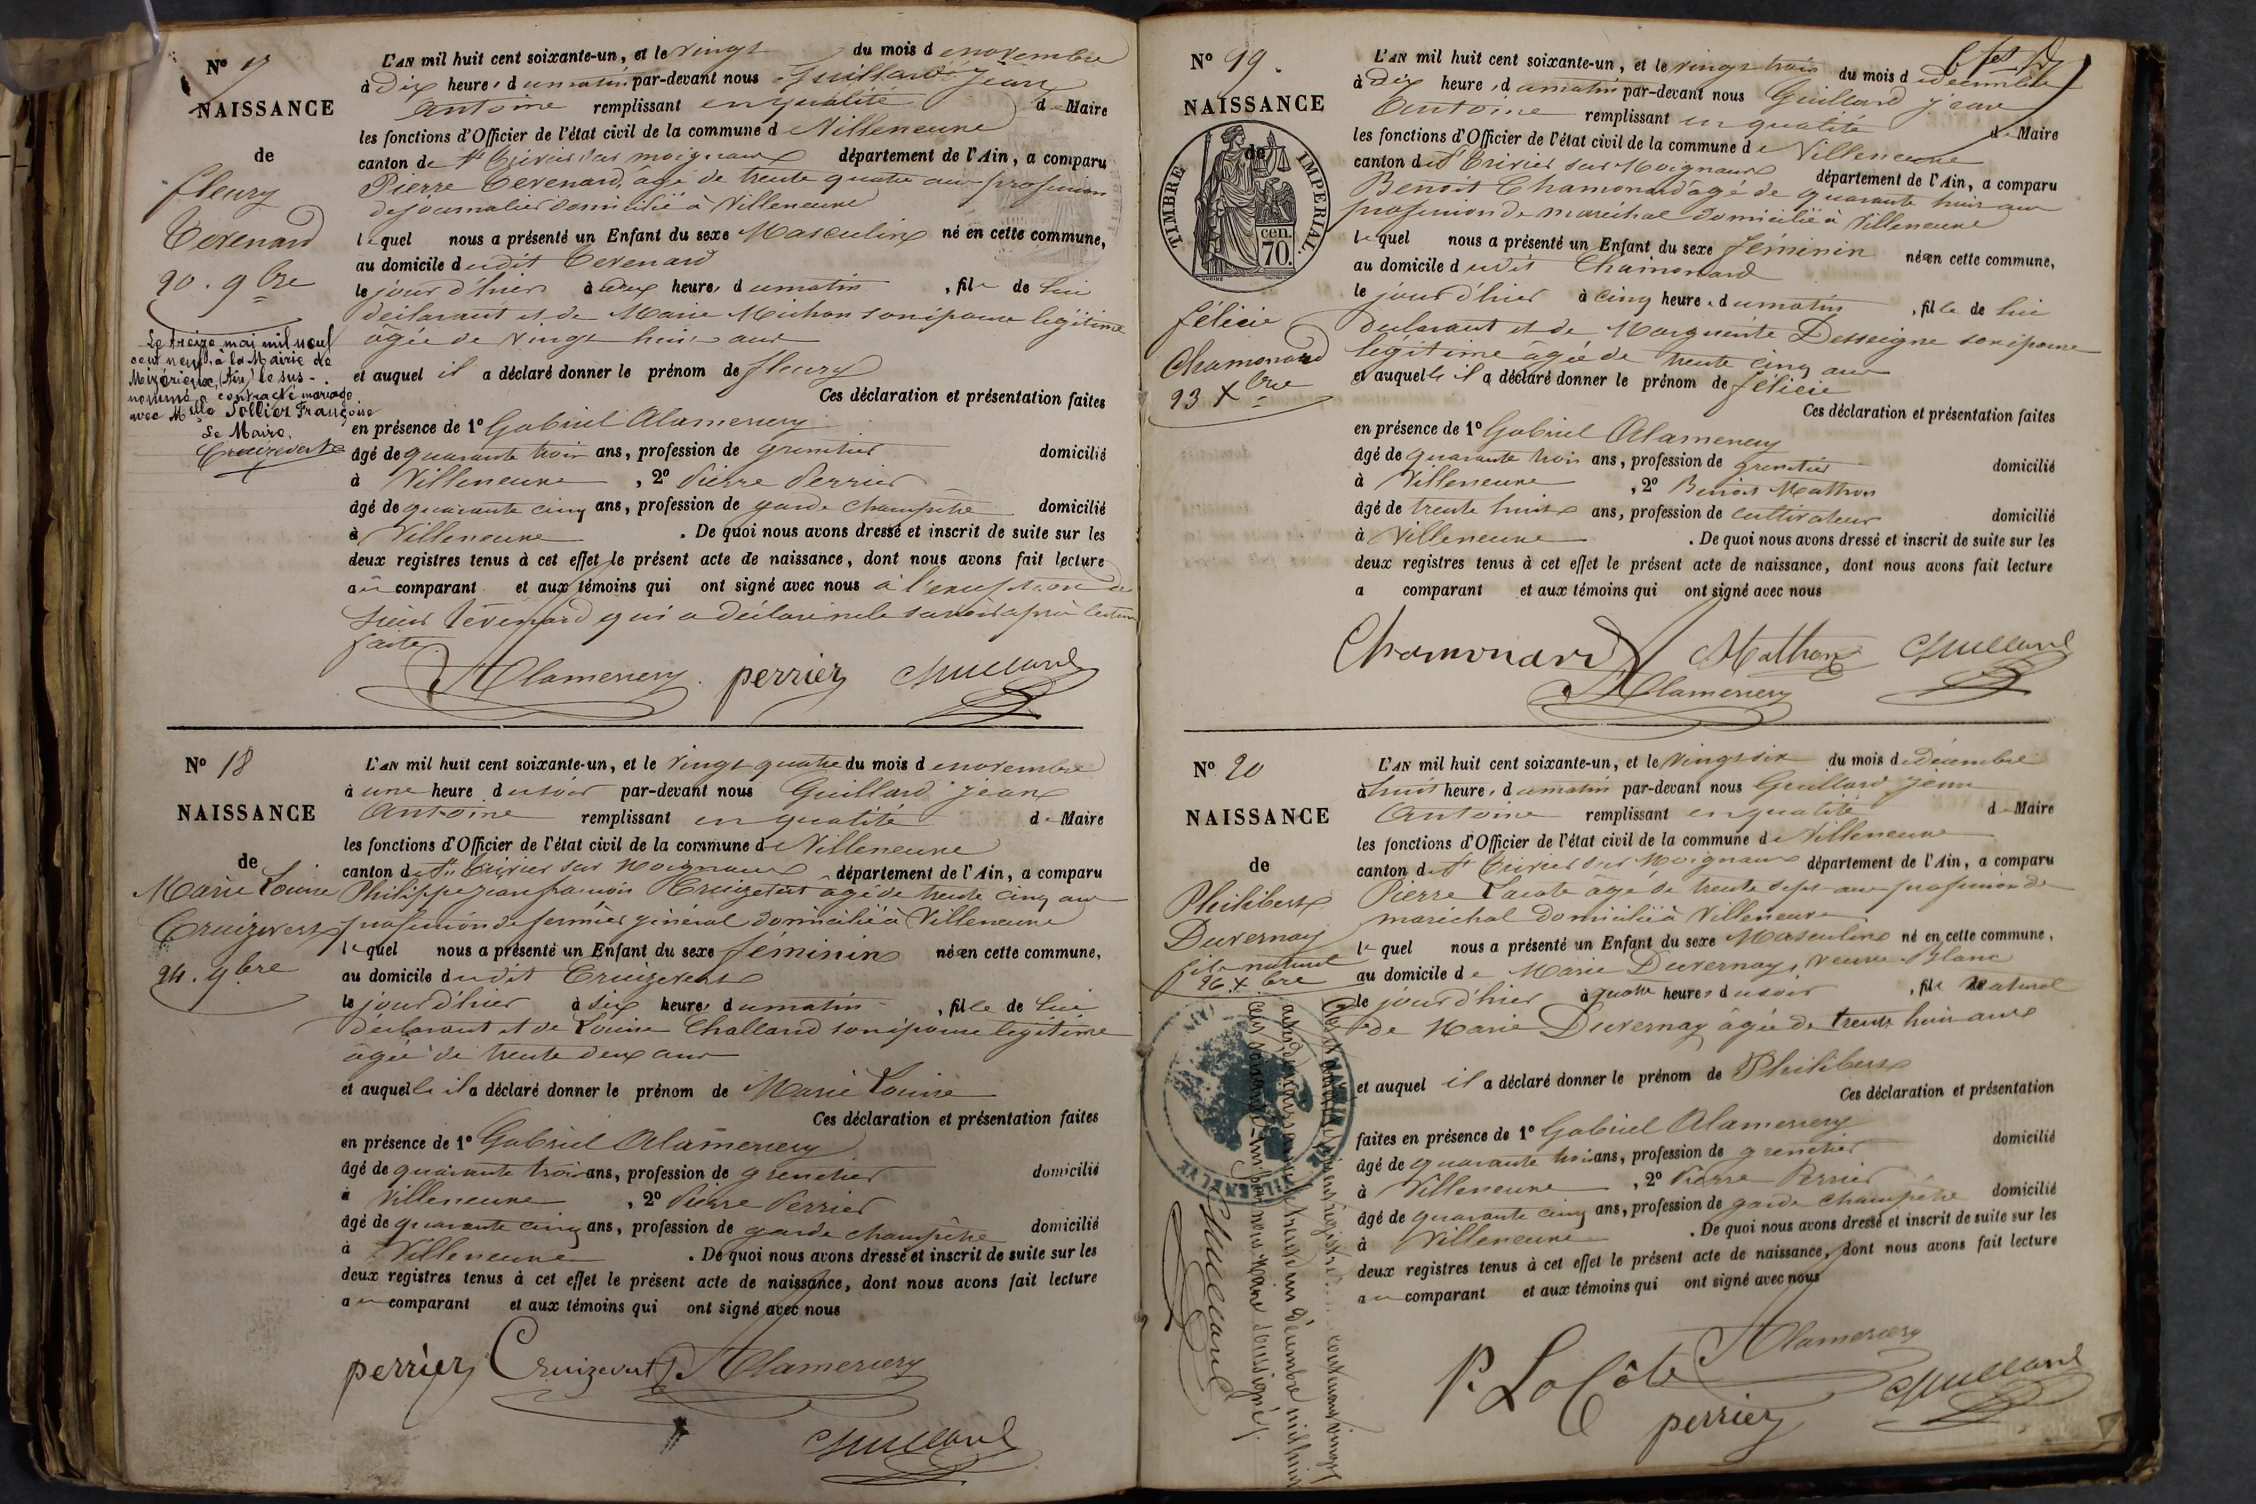 N° 17
NAISSANCE
de
fleury
Tevenard
20. 9bre
Le treize mai mil neuf
cent neuf, à la Mairie de
Mizérieux, (Ain) le sus-
nommé a contracté mariage
avec Mlle Sollier Françoise
Le Maire,
Cruizevert
L'AN mil huit cent soixante-un, et le vingt du mois de novembre
à Dix heures du matin par-devant nous Guillard Jean
Antoine remplissant en qualité de Maire
les fonctions d'Officier de l'état civil de la commune de Villeneuve
canton de St Trivier sur moignans département de l'Ain, a comparu
Pierre Tevenard, âgé de trente quatre ans profession
de journalier domicilié à Villeneuve
lequel nous a présenté un Enfant du sexe Masculin né en cette commune,
au domicile dudit Tevenard
le jour d'hier à deux heures du matin, fils de lui
déclarant et de Marie Michon son épouse légitime
âgée de vingt huit ans
et auquel il a déclaré donner le prénom de fleury
Ces déclaration et présentation faites
en présence de 1° Gabriel Alamercery
âgé de quarante trois ans, profession de grenetier domicilié
à Villeneuve, 2° Pierre Perrier
âgé de quarante cinq ans, profession de garde champêtre domicilié
à Villeneuve. De quoi nous avons dressé et inscrit de suite sur les
deux registres tenus à cet effet le présent acte de naissance, dont nous avons fait lecture
au comparant et aux témoins qui ont signé avec nous à l'exception du
sieur Tévenard qui a déclaré ne le savoir après lecture
faite.
Alamercery perrier Guillard
N° 18
NAISSANCE
de
Marie Louise
Cruizevert
24. 9bre
L'AN mil huit cent soixante-un, et le vingt quatre du mois de novembre
à une heure du soir par-devant nous Guillard Jean
Antoine remplissant en qualité de Maire
les fonctions d'Officier de l'état civil de la commune de Villeneuve
canton de St Trivier sur Moignans département de l'Ain, a comparu
Philippe jean françois Cruizevert âgé de trente cinq ans
profession de fermier général domicilié à Villeneuve
lequel nous a présenté un Enfant du sexe féminin née en cette commune,
au domicile dudit Cruizevert
le jour d'hier à six heures du matin, fille de lui
déclarant et de Louise Challand son épouse légitime
âgée de trente deux ans
et auquelle il a déclaré donner le prénom de Marie Louise
Ces déclaration et présentation faites
en présence de 1° Gabriel Alamercery
âgé de quarante trois ans, profession de grenetier domicilié
à Villeneuve, 2° Pierre Perrier
âgé de quarante cinq ans, profession de garde champêtre domicilié
à Villeneuve. De quoi nous avons dressé et inscrit de suite sur les
deux registres tenus à cet effet le présent acte de naissance, dont nous avons fait lecture
au comparant et aux témoins qui ont signé avec nous
perrier Cruizevert Alamercery
Guillard
N° 19.
NAISSANCE
de
TIMBRE IMPERIAL.
70. cen.
félicie
Chamonard
23 Xbre
L'AN mil huit cent soixante-un, et le vingt trois du mois de décembre
à Dix heures du matin par-devant nous Guillard jean
Antoine remplissant en qualité de Maire
les fonctions d'Officier de l'état civil de la commune de Villeneuve
canton de St Trivier sur Moignans département de l'Ain, a comparu
Benoit Chamonard âgé de quarante huit ans
profession de maréchal domicilié à Villeneuve
lequel nous a présenté un Enfant du sexe féminin née en cette commune,
au domicile dudit Chamonard
le jour d'hier à cinq heures du matin, fille de lui
déclarant et de Marguerite Desseigne son épouse
légitime âgée de trente cinq ans
et auquelle il a déclaré donner le prénom de félicie
Ces déclaration et présentation faites
en présence de 1° Gabriel Alamercery
âgé de quarante trois ans, profession de grenetier domicilié
à Villeneuve, 2° Benoit Mathon
âgé de trente huit ans, profession de cultivateur domicilié
à Villeneuve. De quoi nous avons dressé et inscrit de suite sur les
deux registres tenus à cet effet le présent acte de naissance, dont nous avons fait lecture
a comparant et aux témoins qui ont signé avec nous
Chamonard Mathon Guillard
Alamercery
N° 20
NAISSANCE
de
Philibert
Duvernay
fils naturel
26. Xbre
L'AN mil huit cent soixante-un, et le vingt six du mois de décembre
à huit heures du matin par-devant nous Guillard Jean
Antoine remplissant en qualité de Maire
les fonctions d'Officier de l'état civil de la commune de Villeneuve
canton de St Trivier sur Moignans département de l'Ain, a comparu
Pierre Lacote âgé de trente sept ans profession de
maréchal domicilié à Villeneuve
lequel nous a présenté un Enfant du sexe Masculin né en cette commune,
au domicile de Marie Duvernay, veuve Blanc
le jour d'hier à quatre heures du soir, fils Naturel
de Marie Duvernay âgée de trente huit ans
et auquel il a déclaré donner le prénom de Philibert
Ces déclaration et présentation
faites en présence de 1° Gabriel Alamercery domicilié
âgé de quarante trois ans, profession de grenetier
à Villeneuve, 2° Pierre Perrier
âgé de quarante cinq ans, profession de garde champêtre domicilié
à Villeneuve. De quoi nous avons dressé et inscrit de suite sur les
deux registres tenus à cet effet le présent acte de naissance, dont nous avons fait lecture
au comparant et aux témoins qui ont signé avec nous
P. LaCôte Alamercery
perrier Guillard
registre contenant vingt
trente un décembre mil huit
cent soixante-un par nous Maire soussigné.
Guillard
VILLENEUVE